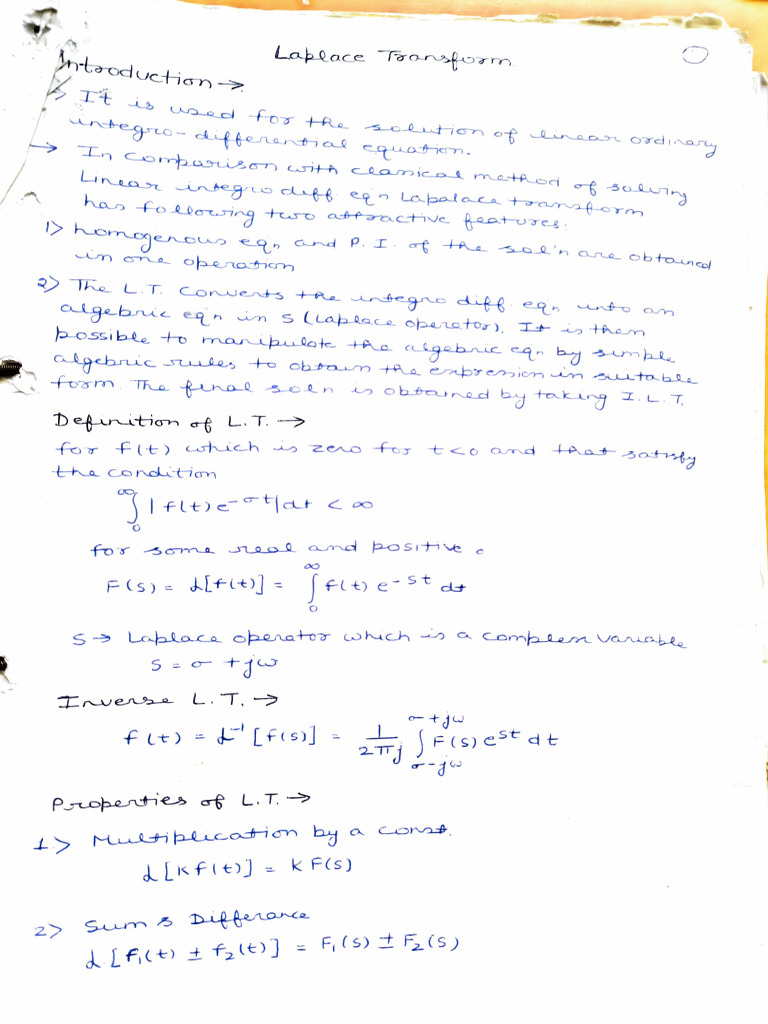 Laplace Transform
Introduction →
> It is used for the solution of linear ordinary
integro-differential equation.
→ In comparison with classical method of solving
Linear integro diff eqn Lapalace transform
has following two attractive features:
1> homogenous eqn and P. I. of the sol'n are obtained
in one operation
2> The L.T. converts the integro diff. eqn into an
algebric eq'n in s (Laplace operator). It is then
possible to manipulate the algebric eqn by simple
algebric rules to obtain the expression in suitable
form. The final soln is obtained by taking I.L.T.
Definition of L.T. →
for f(t) which is zero for t<0 and that satisfy
the condition
∫₀^∞ |f(t)e^-σt|dt < ∞
for some real and positive σ
F(s) = ℒ[f(t)] = ∫₀^∞ f(t) e^-st dt
S → Laplace operator which is a complex variable
S = σ + jω
Inverse L.T. →
f(t) = ℒ⁻¹ [f(s)] = 1/2πj ∫_{σ-jω}^{σ+jω} F(s) e^st dt
Properties of L.T. →
1.> Multiplication by a const.
ℒ[Kf(t)] = K F(s)
2> Sum & Differance
ℒ [f₁(t) ± f₂(t)] = F₁(s) ± F₂(s)